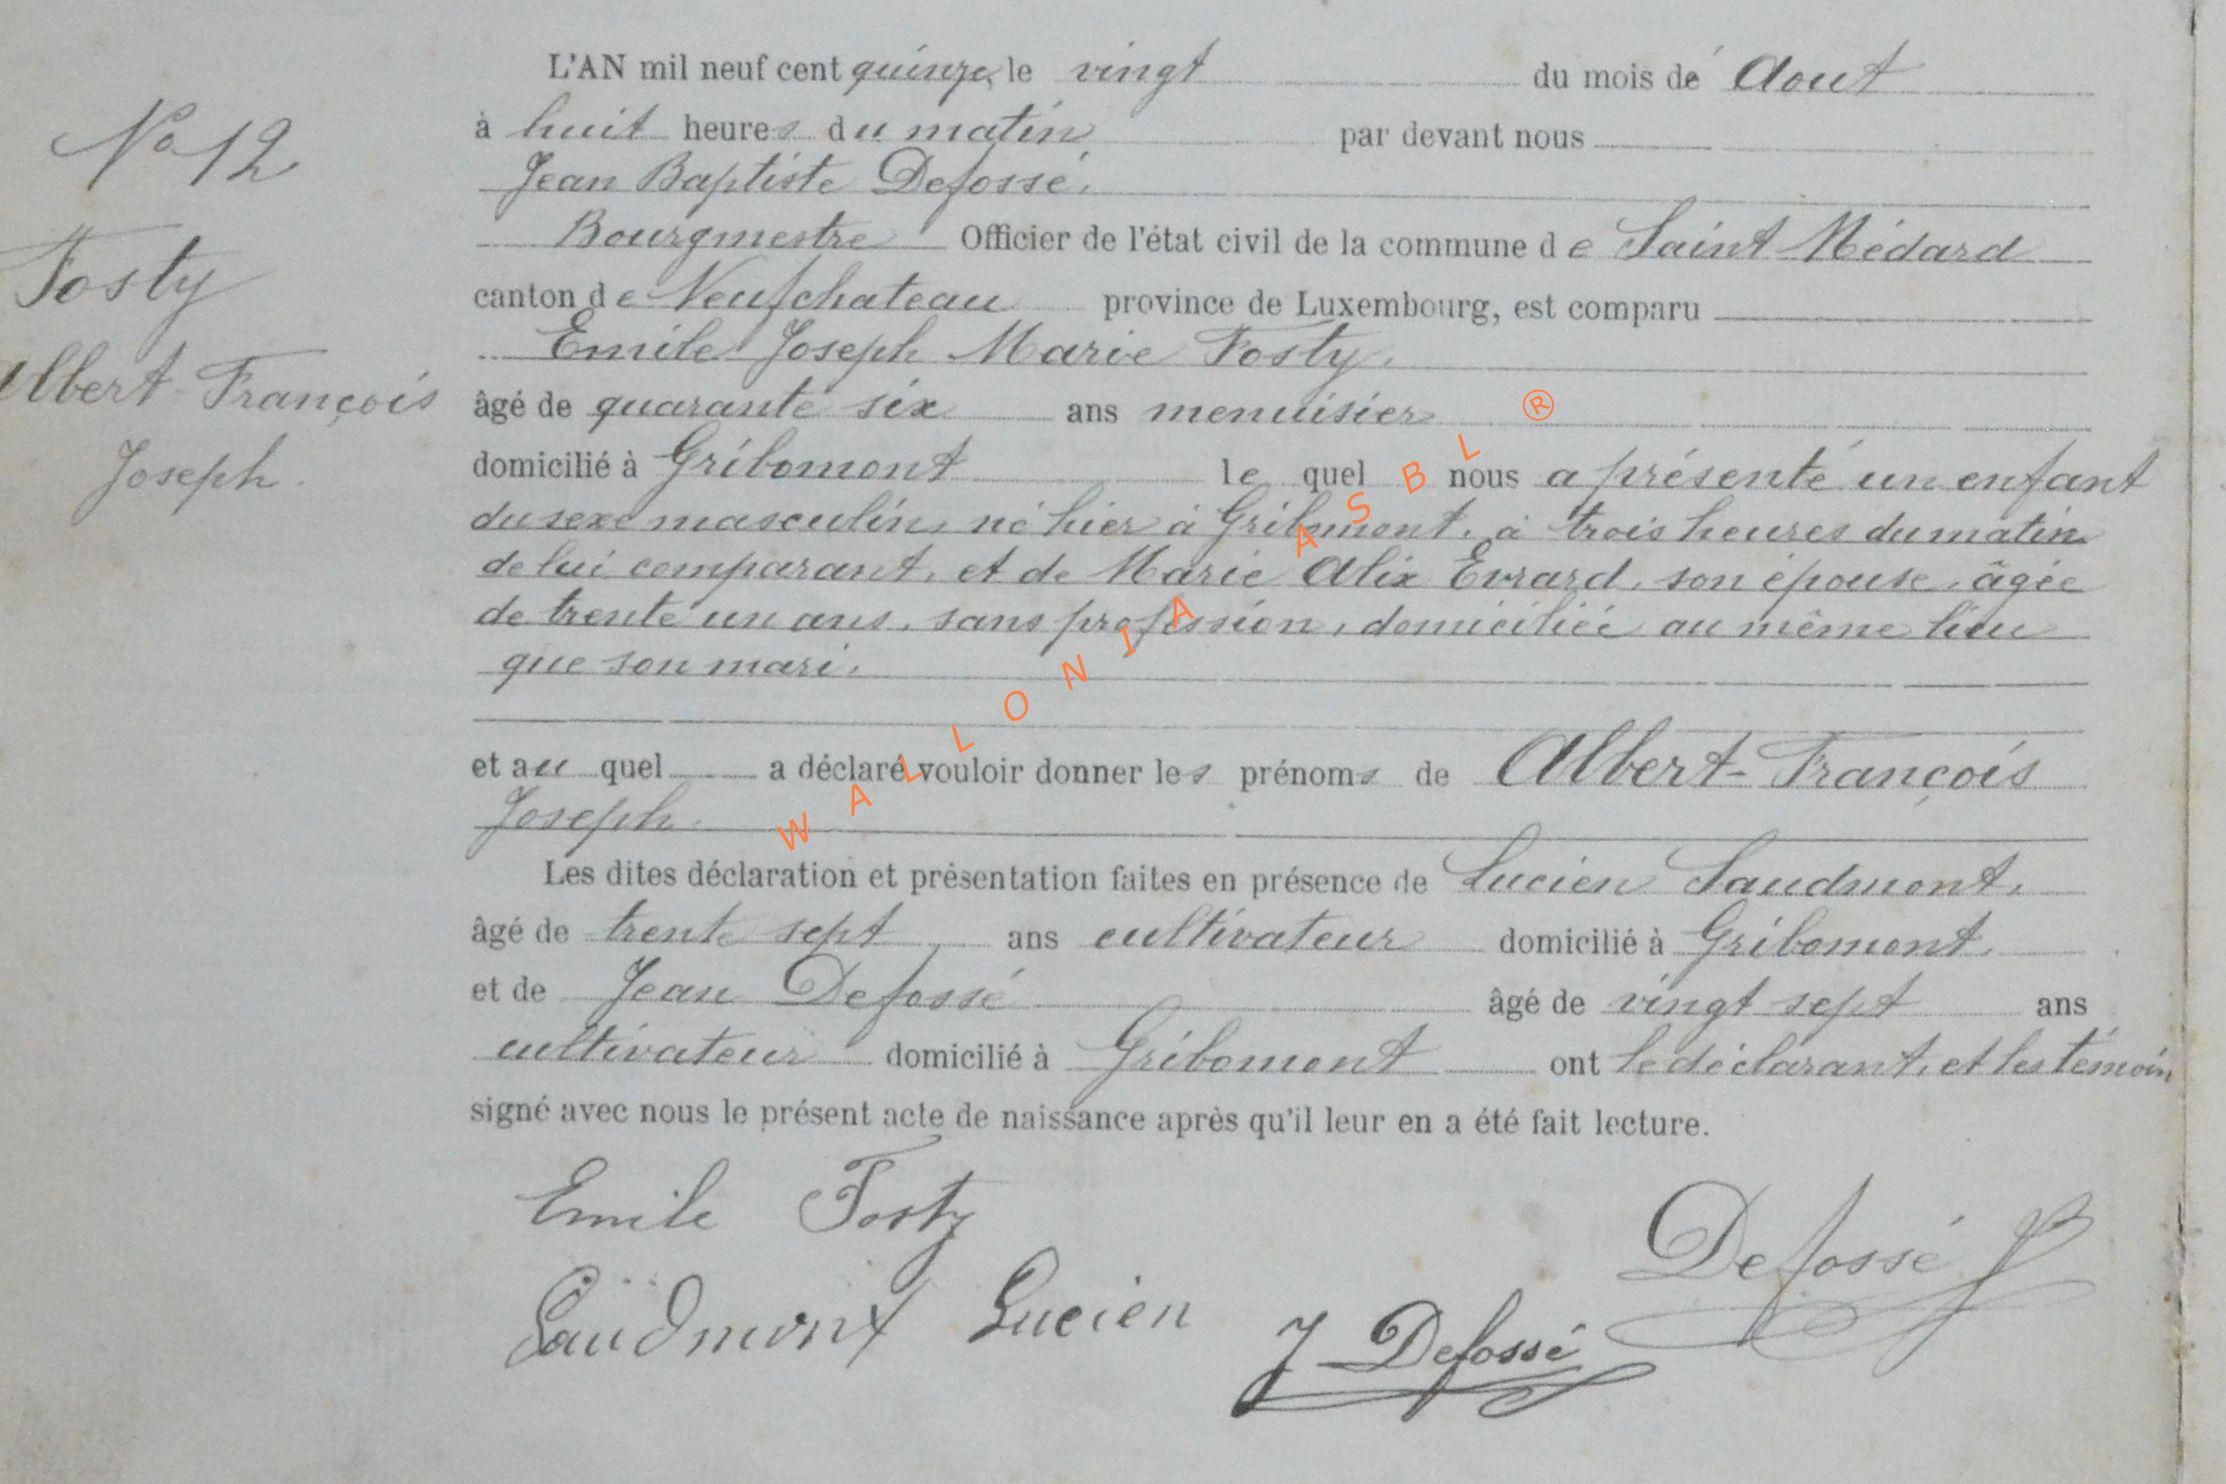 L'AN mil neuf cent quinze, le vingt du mois de Aout
à huit heures du matin par devant nous
Jean Baptiste Defossé,
Bourgmestre Officier de l'état civil de la commune de Saint-Médard
canton de Neufchateau province de Luxembourg, est comparu
Emile Joseph Marie Fosty,
âgé de quarante six ans menuisier
domicilié à Gribomont le quel nous a présenté un enfant
du sexe masculin, né hier à Gribomont, à trois heures du matin
de lui comparant, et de Marie Alix Evrard, son épouse, âgée
de trente un ans, sans profession, domiciliée au même lieu
que son mari,
et au quel a déclaré vouloir donner les prénoms de Albert-François
Joseph.
Les dites déclaration et présentation faites en présence de Lucien Saudmont,
âgé de trente sept ans cultivateur domicilié à Gribomont,
et de Jean Defossé âgé de vingt sept ans
cultivateur domicilié à Gribomont ont le déclarant, et les témoins
signé avec nous le présent acte de naissance après qu'il leur en a été fait lecture.
Emile Fosty
Saudmont Lucien
J Defossé
Defossé
No 12
Fosty
Albert-François
Joseph.
WALLONIA ASBL ®